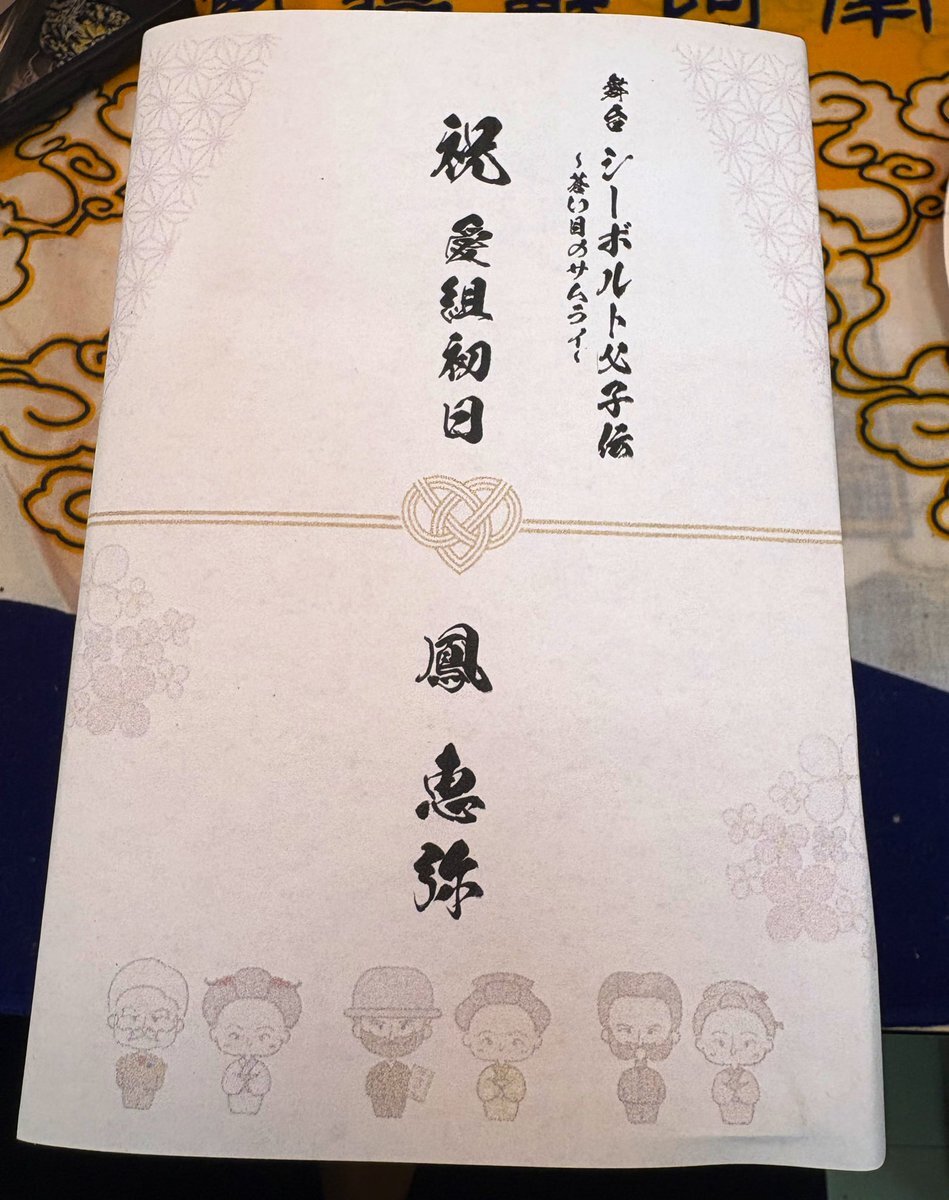 舞台 シーボルト父子伝
～蒼い目のサムライ～
祝 愛組初日
鳳 恵弥